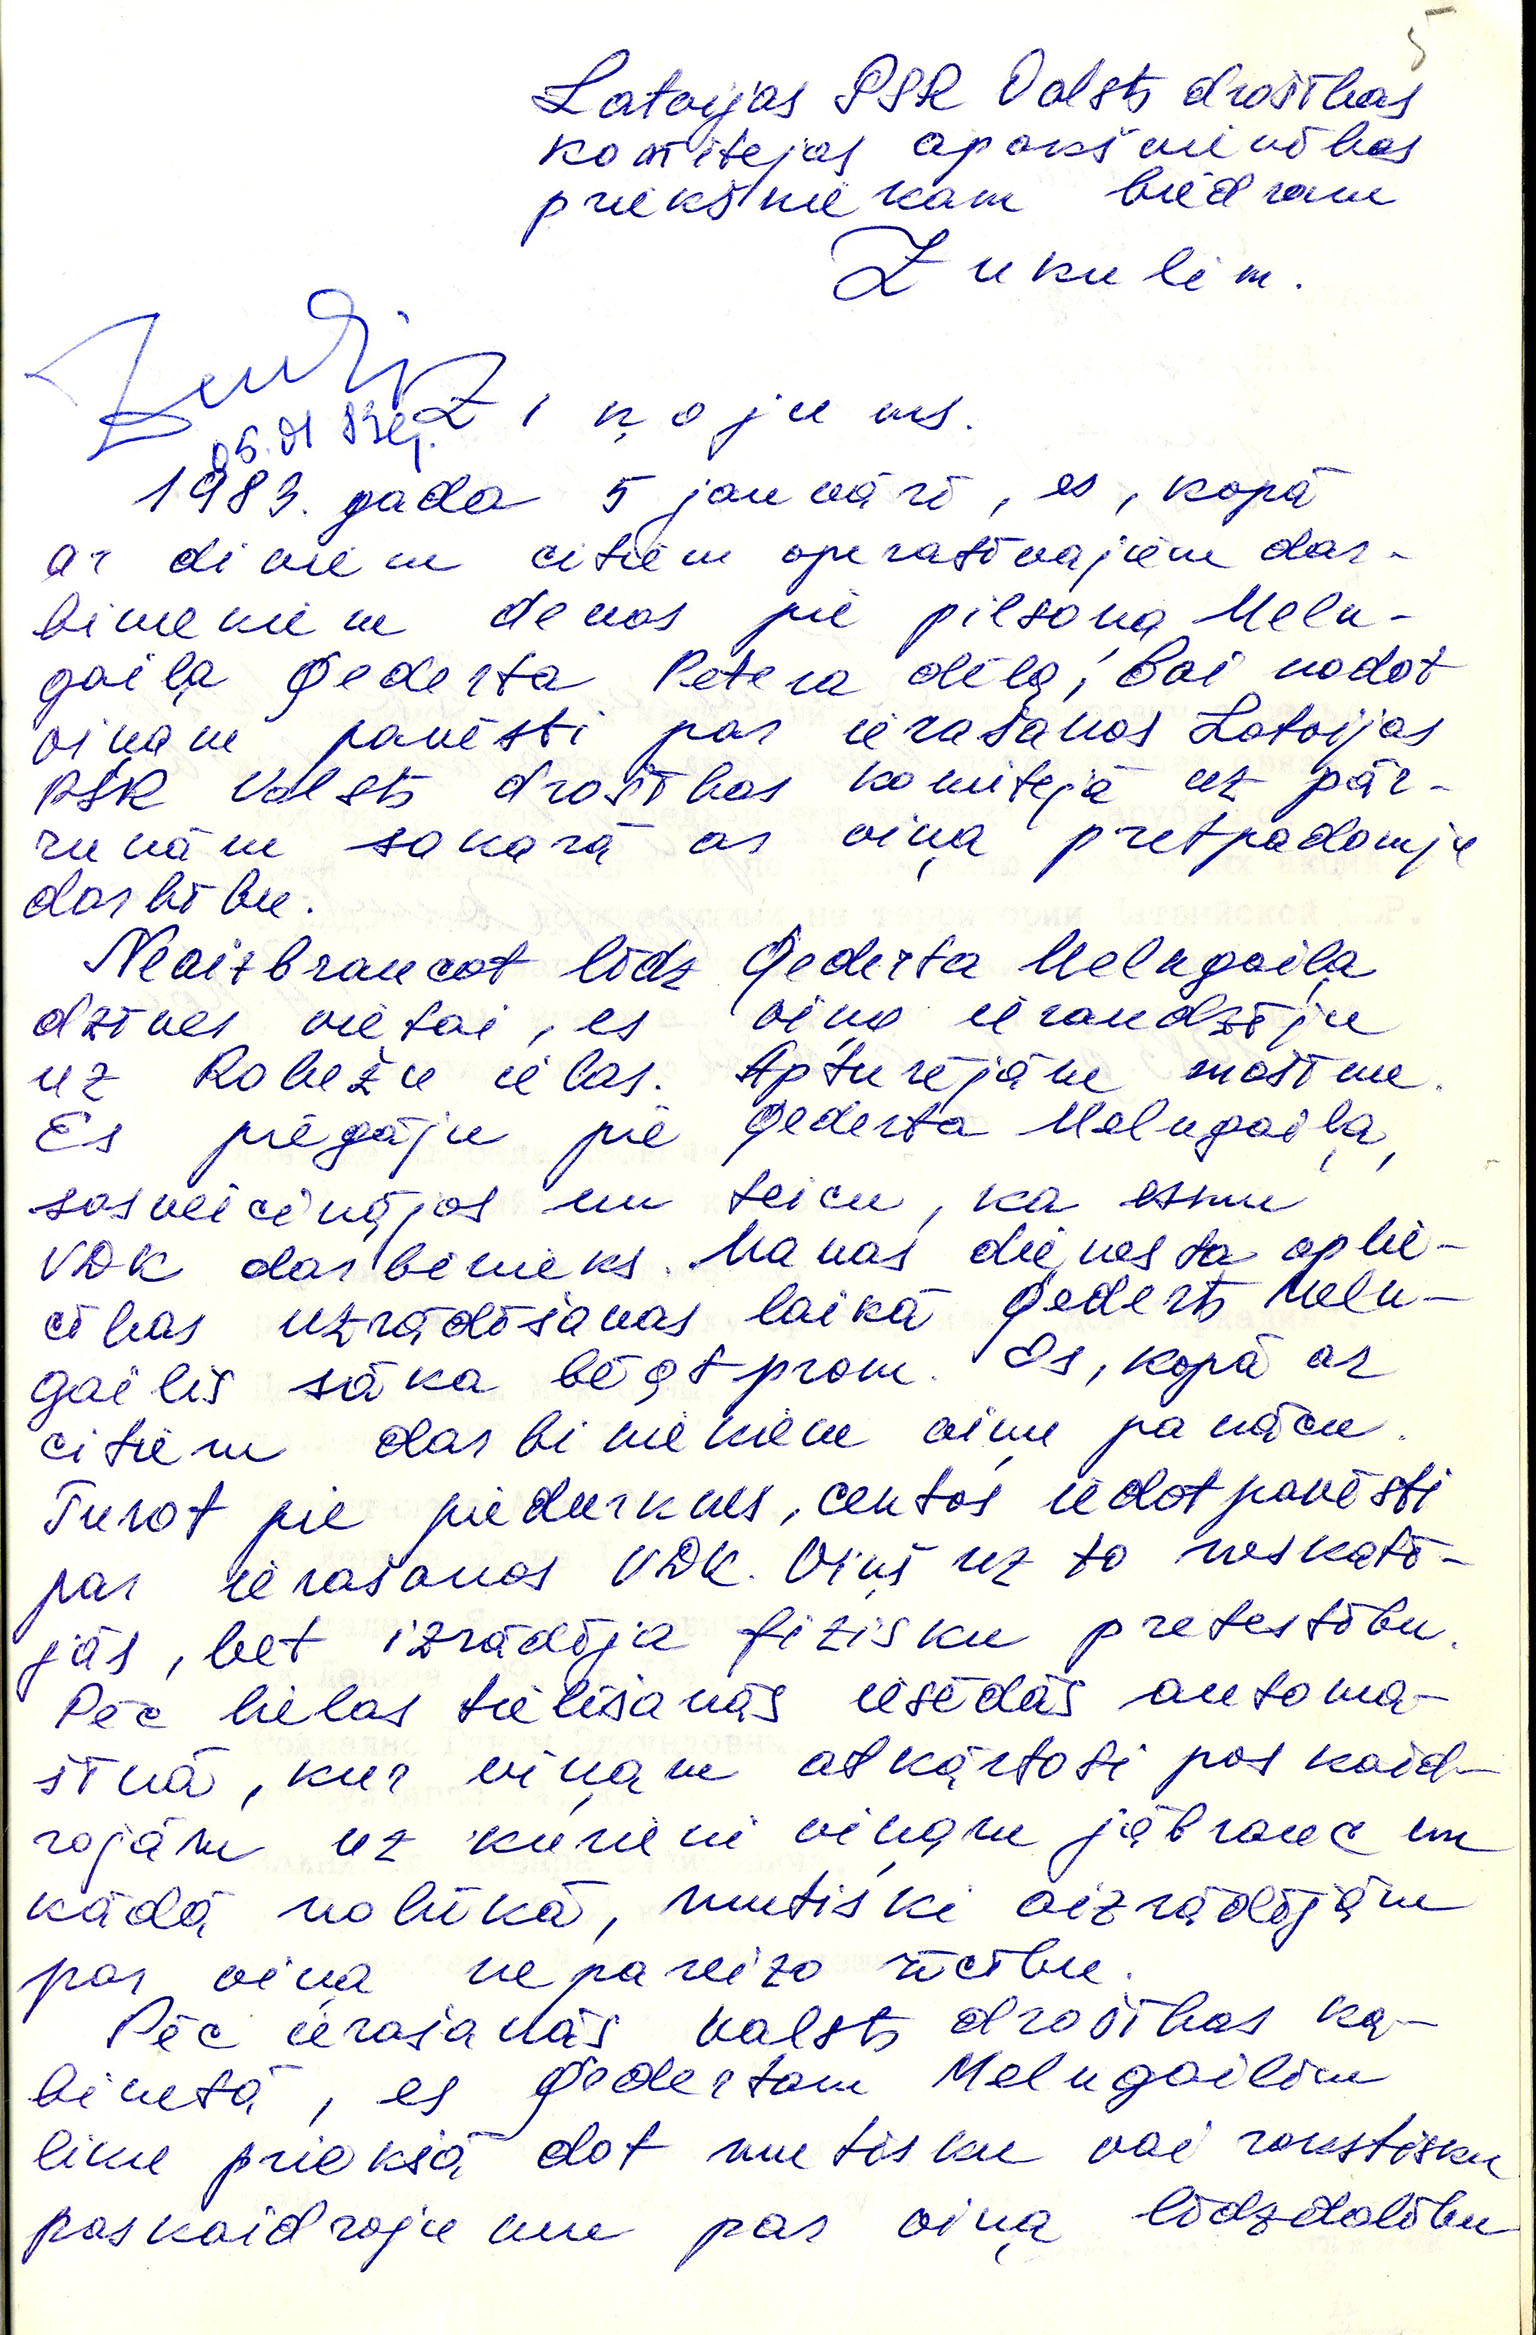 5
Latvijas PSR Valsts drošības
komitejas apakšvienības
priekšniekam biedram
Zukulim.
Ziņojums.
05.01 83g.
1983. gada 5 janvārī, es, kopā
ar diviem citiem operatīvajiem dar-
biniekiem devos pie pilsoņa Meln-
gaiļa Ģederta Pētera dēla, lai nodot
viņam pavēsti par ierašanos Latvijas
PSR Valsts drošības komitejā uz pār-
runām sakarā ar viņa pretpadomju
darbību.
Neaizbraucot līdz Ģederta Melngaiļa
dzīves vietai, es viņu ieraudzīju
uz Robežu ielas. Apturējām mašīnu.
Es piegāju pie Ģederta Melngaiļa,
sasveicinājos un teicu, ka esmu
VDK darbinieks. Manas dienesta aplie-
cības uzrādīšanas laikā Ģederts Meln-
gailis sāka bēgt prom. Es, kopā ar
citiem darbiniekiem viņu panācu.
Turot pie piedurknes, centos iedot pavēsti
par ierašanos VDK. Viņš uz to neskatī-
jās, bet izrādīja fizisku pretestību.
Pēc lielas tielēšanās iesēdās automa-
šīnā, kur viņam atkārtoti paskaid-
rojām uz kurieni viņam jābrauc un
kādā nolūkā, mutiski aizrādījām
par viņa nepareizo rīcību.
Pēc ierašanās Valsts drošības ka-
binetā, es Ģedertam Melngailim
liku priekšā dot mutisku vai rakstisku
paskaidrojumu par viņa līdzdalību